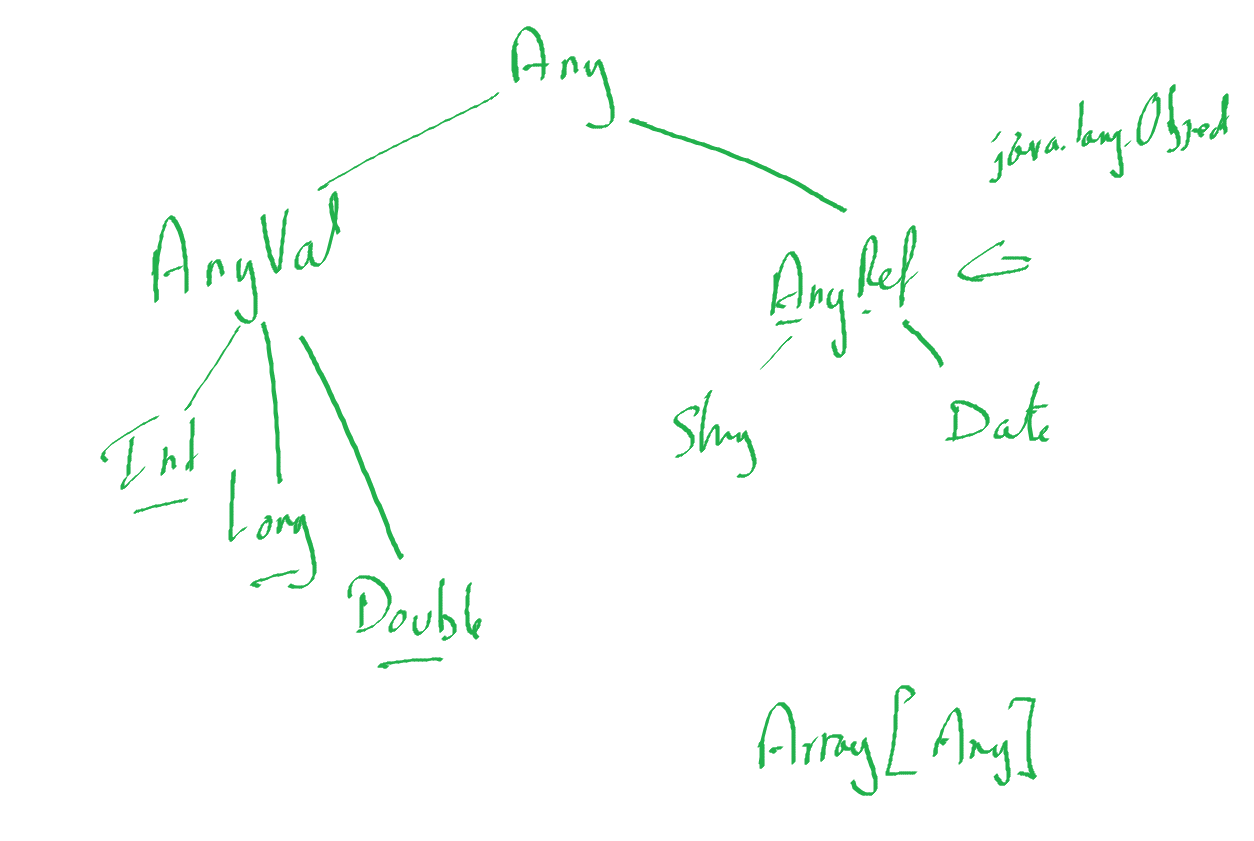 Any
java.lang.Object
AnyVal
AnyRef
Int
Long
Double
String
Date
Array[Any]